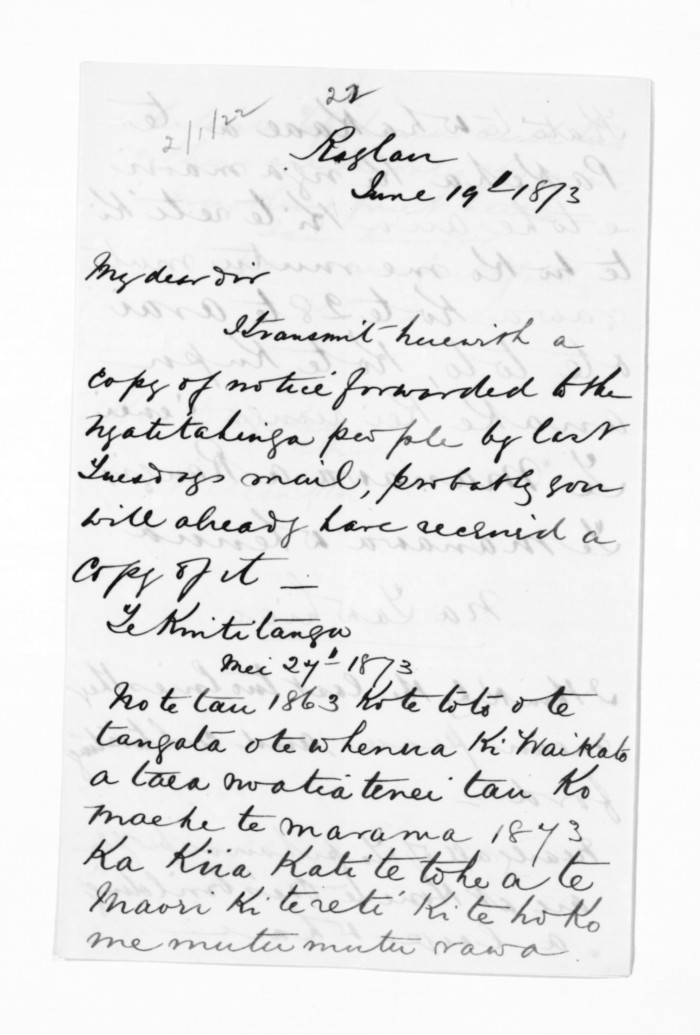 22
2/1/22
Raglan
June 19th 1873
My dear Sir
I transmit herewith a
copy of notice forwarded to the
Ngatitahinga people by last
Tuesdays mail, probably you
will already have received a
copy of it —
Te Kuititanga
Mei 27th 1873
No te tau 1863 Ko te toto o te
tangata o te whenua Ki Waikato
a taea noatia tenei tau Ko
Maehe te marama 1873
Ka Kiia Kati te tohe a te
Maori Ki te reti Ki te hoKo
me mutu mutu rawa.